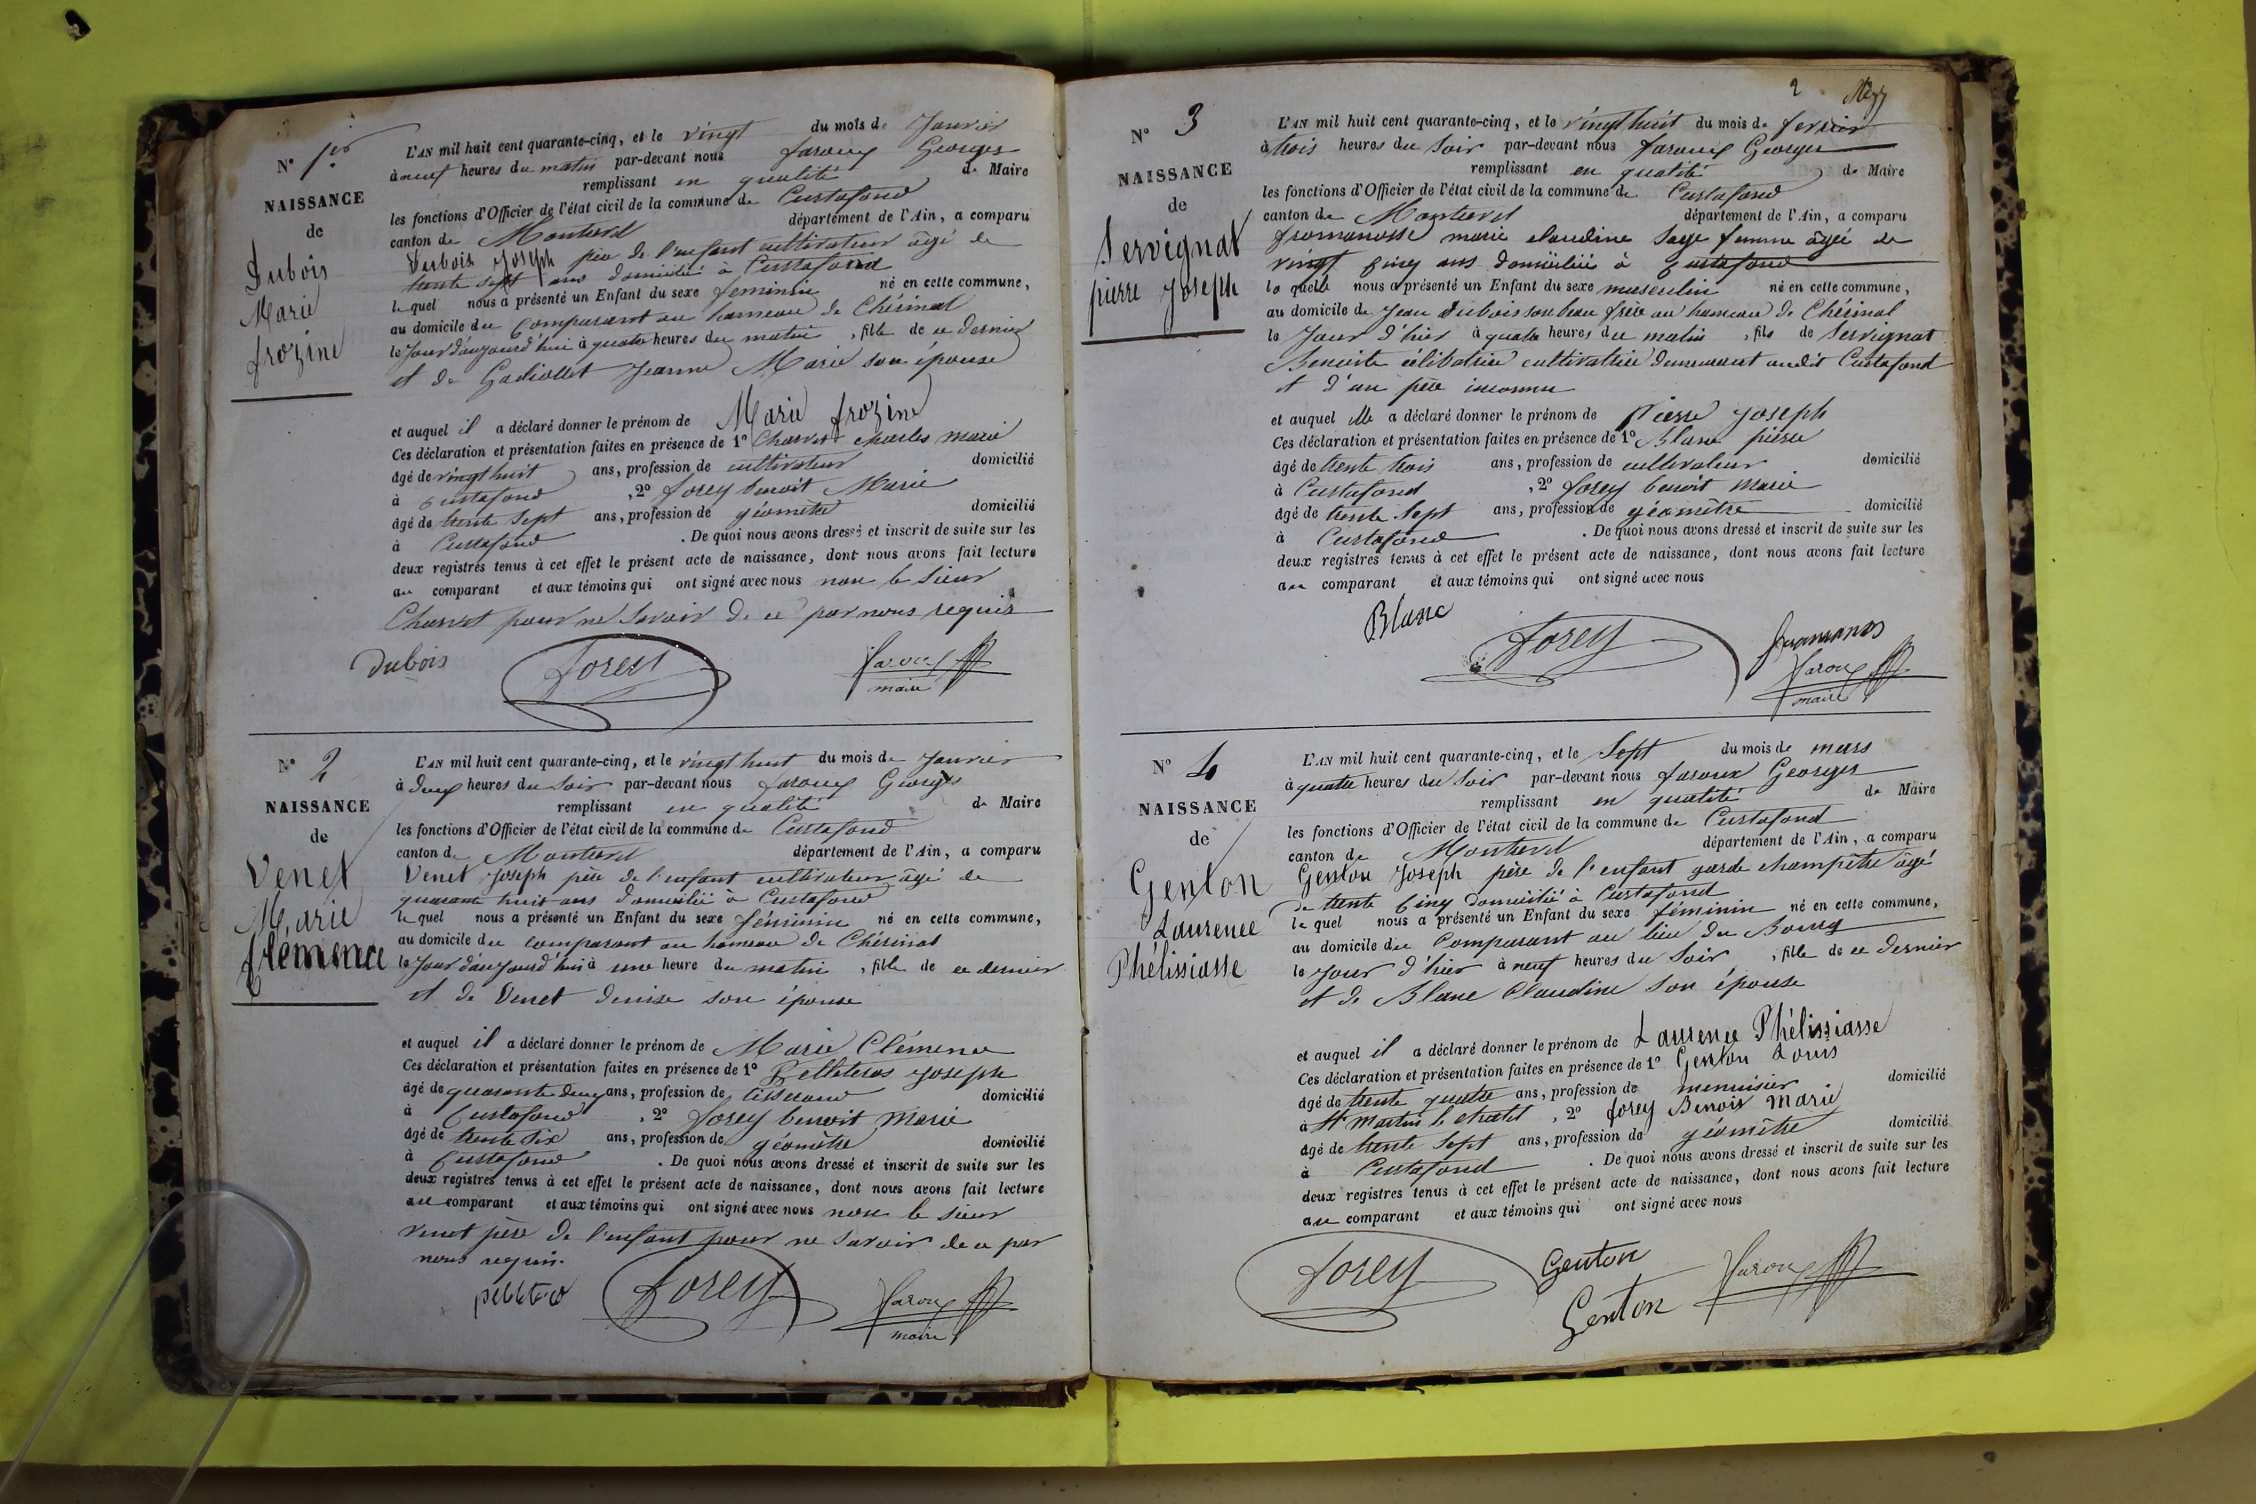 N° 1er
NAISSANCE
de
Dubois
Marie
frozine
L'AN mil huit cent quarante-cinq, et le vingt du mois de Janvier
à neuf heures du matin par-devant nous faroux Georges
remplissant en qualité de Maire
les fonctions d'Officier de l'état civil de la commune de Curtafond
canton de Montrevel département de l'Ain, a comparu
Dubois Joseph père de l'enfant cultivateur âgé de
trente sept ans domicilié à Curtafond
lequel nous a présenté un Enfant du sexe feminin né en cette commune,
au domicile du Comparant au hameau de Chérinal
le Jour d'aujourd'hui à quatre heures du matin , fille de ce dernier
et de Gadiollet Jeanne Marie son épouse
et auquel il a déclaré donner le prénom de Marie frozine
Ces déclaration et présentation faites en présence de 1° Charvet charles marie
âgé de vingt huit ans, profession de cultivateur domicilié
à Curtafond , 2° forey benoit Marie
âgé de trente sept ans, profession de géomètre domicilié
à Curtafond . De quoi nous avons dressé et inscrit de suite sur les
deux registres tenus à cet effet le présent acte de naissance, dont nous avons fait lecture
au comparant et aux témoins qui ont signé avec nous non le sieur
Charvet pour ne savoir de ce par nous requis
Dubois forey faroux
maire
N° 2
NAISSANCE
de
Venet
Marie
Clémence
L'AN mil huit cent quarante-cinq, et le vingt huit du mois de Janvier
à deux heures du soir par-devant nous faroux Georges
remplissant en qualité de Maire
les fonctions d'Officier de l'état civil de la commune de Curtafond
canton de Montrevel département de l'Ain, a comparu
Venet Joseph père de l'enfant cultivateur âgé de
quarante huit ans domicilié à Curtafond
lequel nous a présenté un Enfant du sexe féminin né en cette commune,
au domicile du comparant au hameau de Chérinal
le Jour d'aujourd'hui à une heure du matin , fille de ce dernier
et de Venet denise son épouse
et auquel il a déclaré donner le prénom de Marie Clémence
Ces déclaration et présentation faites en présence de 1° Joseph
âgé de quarante deux ans, profession de tisserand domicilié
à Curtafond , 2° forey benoit Marie
âgé de trente six ans, profession de géomètre domicilié
à Curtafond . De quoi nous avons dressé et inscrit de suite sur les
deux registres tenus à cet effet le présent acte de naissance, dont nous avons fait lecture
au comparant et aux témoins qui ont signé avec nous non le sieur
venet père de l'enfant pour ne savoir de ce par
nous requis.
forey faroux
maire
2
N° 3
NAISSANCE
de
Servignat
pierre Joseph
L'AN mil huit cent quarante-cinq, et le vingt huit du mois de fevrier
à trois heures du soir par-devant nous faroux Georges
remplissant en qualité de Maire
les fonctions d'Officier de l'état civil de la commune de Curtafond
canton de Montrevel département de l'Ain, a comparu
fromanosse marie claudine sage femme âgée de
vingt cinq ans domiciliée à Curtafond
laquelle nous a présenté un Enfant du sexe masculin né en cette commune,
au domicile de Jean Dubois son beau frère au hameau de Chérinal
le Jour d'hier à quatre heures du matin , fils de Servignat
Benoite célibatrice cultivatrice demeurant audit Curtafond
et d'un père inconnu
et auquel elle a déclaré donner le prénom de Pierre Joseph
Ces déclaration et présentation faites en présence de 1° Blanc pierre
âgé de trente trois ans, profession de cultivateur domicilié
à Curtafond , 2° forey benoit marie
âgé de trente sept ans, profession de géomètre domicilié
à Curtafond . De quoi nous avons dressé et inscrit de suite sur les
deux registres tenus à cet effet le présent acte de naissance, dont nous avons fait lecture
au comparant et aux témoins qui ont signé avec nous
Blanc forey fromanos
faroux
maire
N° 4
NAISSANCE
de
Genton
Laurence
Phélissiasse
L'AN mil huit cent quarante-cinq, et le Sept du mois de mars
à quatre heures du soir par-devant nous faroux Georges
remplissant en qualité de Maire
les fonctions d'Officier de l'état civil de la commune de Curtafond
canton de Montrevel département de l'Ain, a comparu
Genton Joseph père de l'enfant garde champêtre âgé
de trente cinq domicilié à Curtafond
lequel nous a présenté un Enfant du sexe féminin né en cette commune,
au domicile du Comparant au lieu du Bourg
le Jour d'hier à neuf heures du soir , fille de ce dernier
et de Blanc Claudine son épouse
et auquel il a déclaré donner le prénom de Laurence Phélissiasse
Ces déclaration et présentation faites en présence de 1° Genton Louis
âgé de trente quatre ans, profession de menuisier domicilié
à St martin le chatel , 2° forey Benoit Marie
âgé de trente sept ans, profession de géomètre domicilié
à Curtafond . De quoi nous avons dressé et inscrit de suite sur les
deux registres tenus à cet effet le présent acte de naissance, dont nous avons fait lecture
au comparant et aux témoins qui ont signé avec nous
forey Genton faroux
Genton